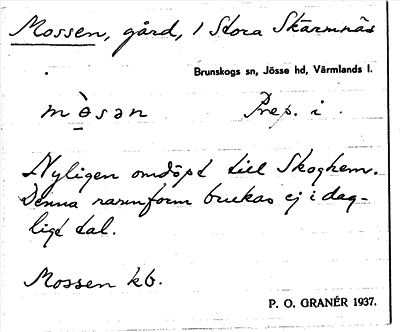 Mossen, gård, 1 Stora Skärmnäs
Brunskogs sn, Jösse hd, Värmlands l.
mò̱sən Prep. i.
Nyligen omdöpt till Skoghem.
Denna namnform brukas ej i dag-
ligt tal.
Mossen kb.
P. O. GRANÉR 1937.